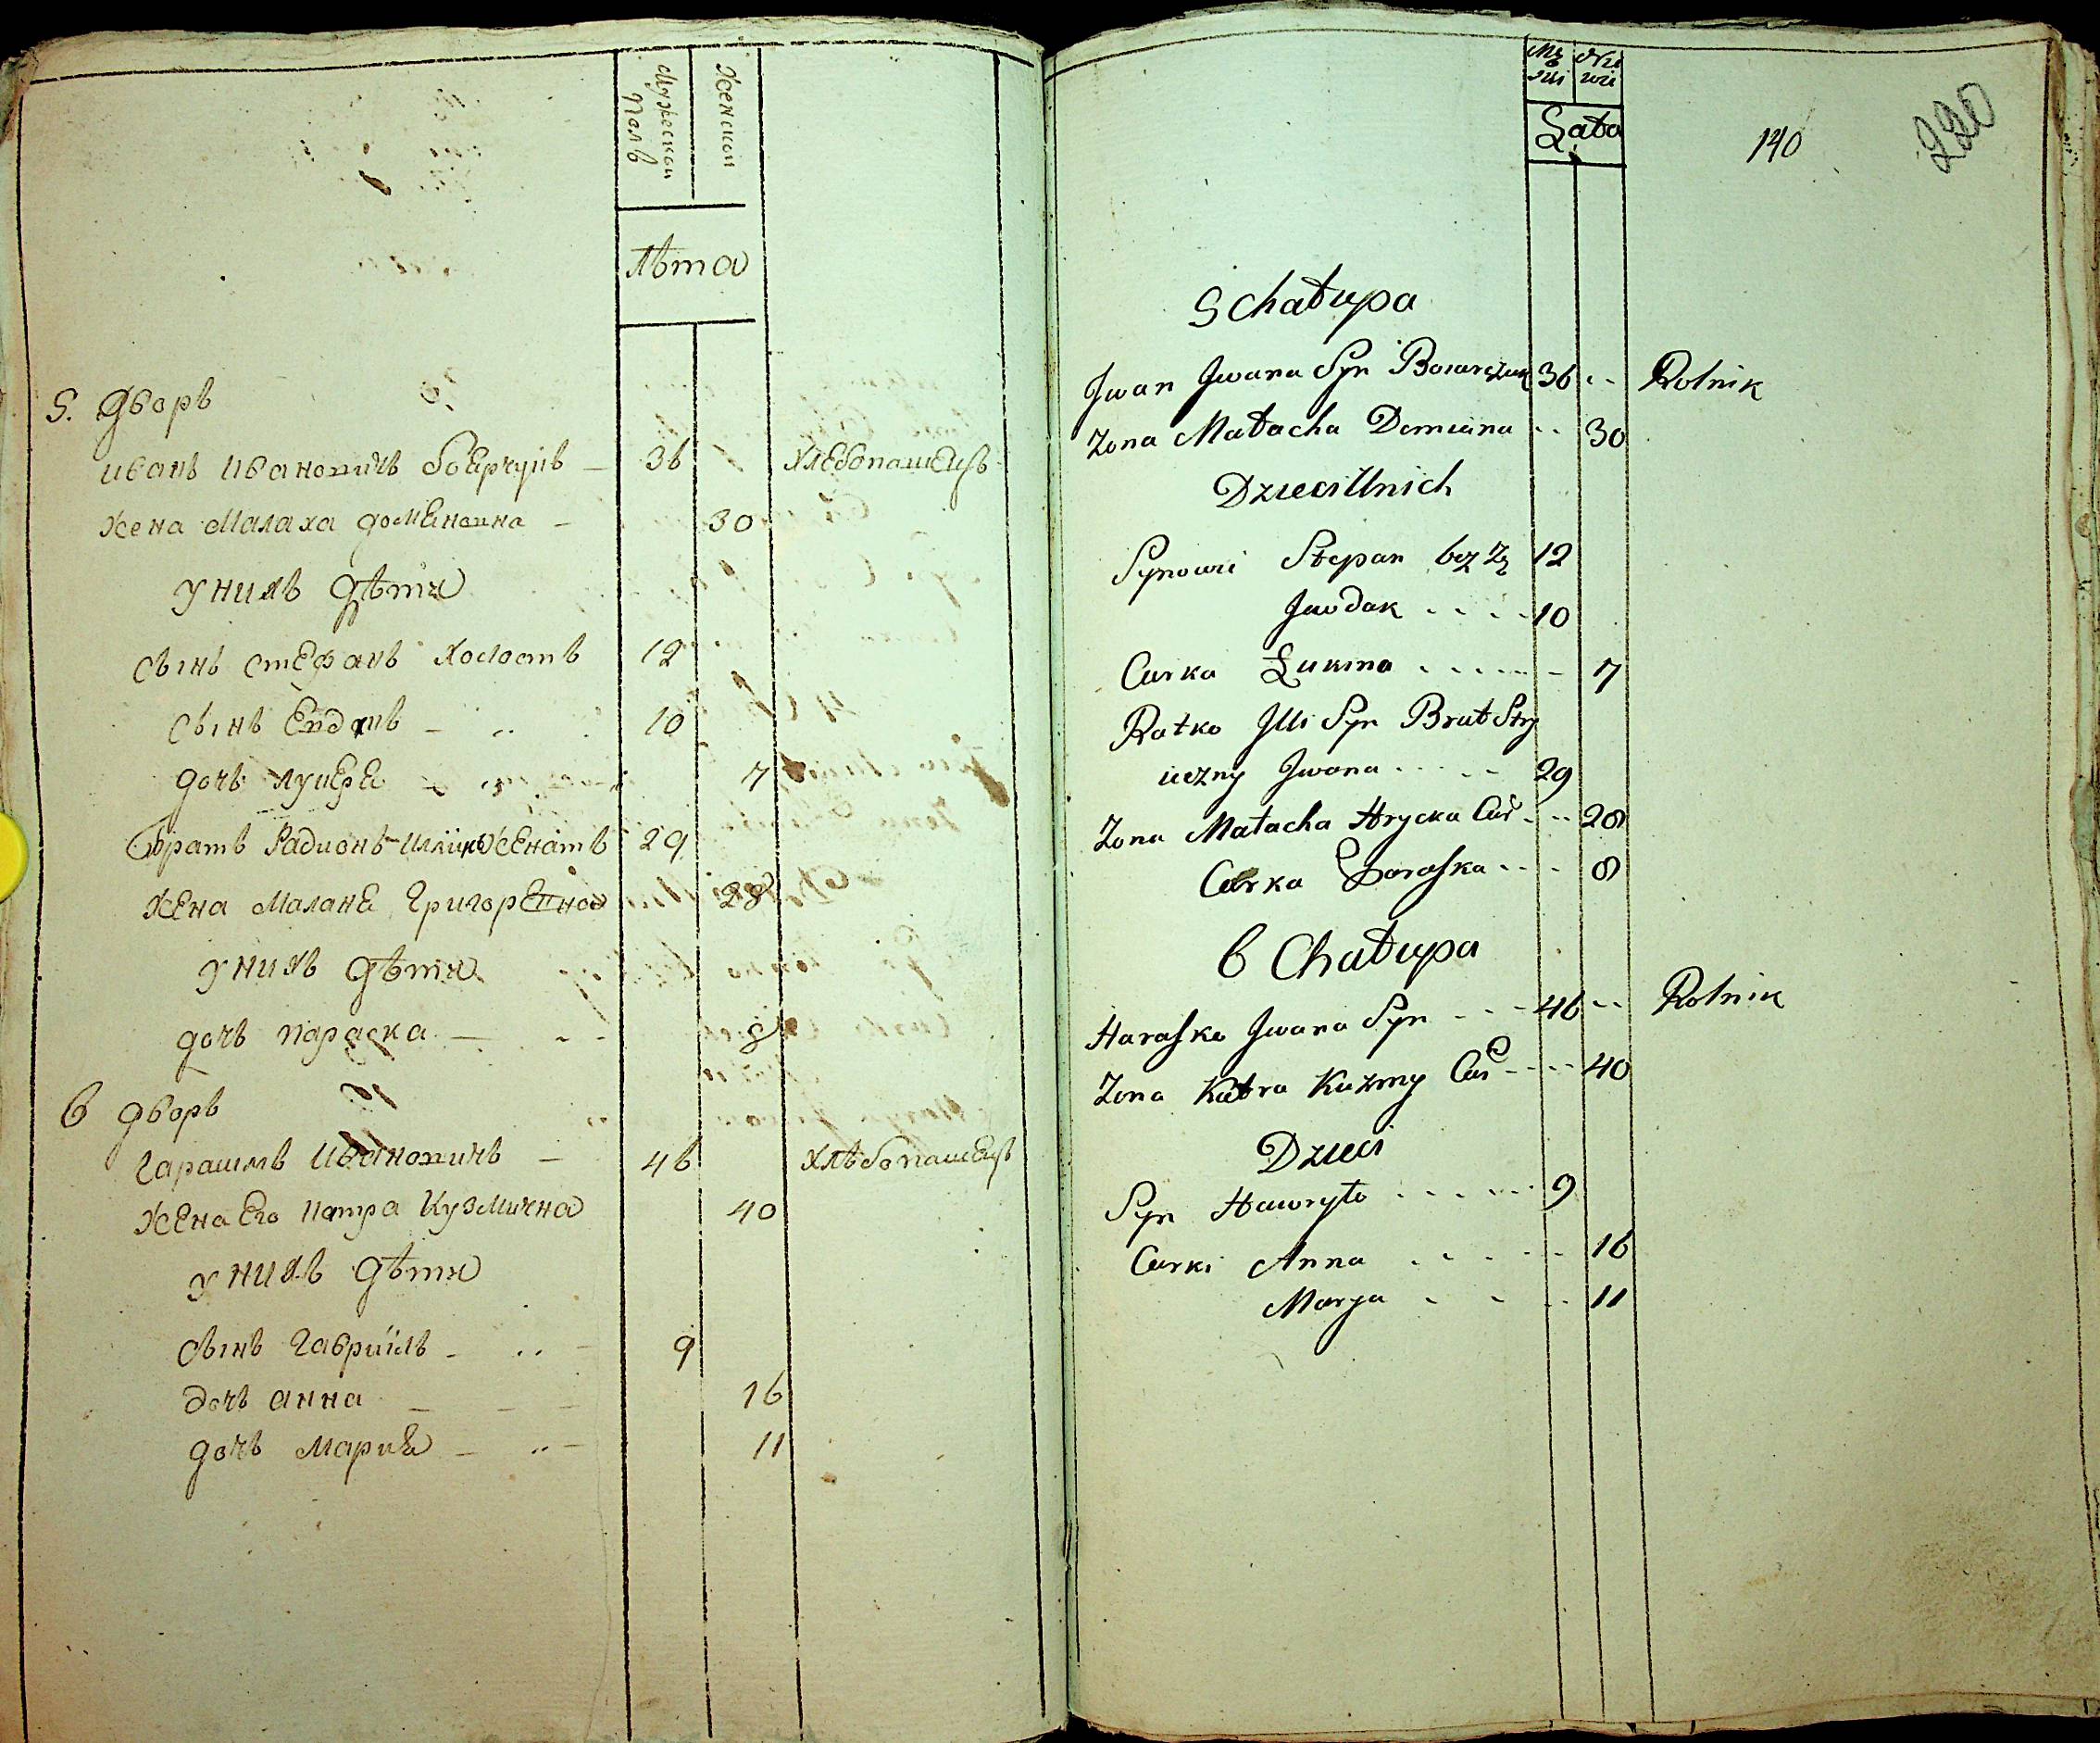 Мужеской Полъ
Женской
Лѣта
5. Дворъ
Иванъ Ивановичъ Боярчукъ – 36 Хлебопашецъ
Жена Малаха Доменовна – 30
У нихъ Дѣти
Сынъ Стефанъ Холостъ 12
Сынъ 10
Дочь 7
Братъ Радионъ Женатъ 29
Жена Малане Григоревна 28
У нихъ Дѣти
дочь Параска – 8
6 Дворъ
Гарашимъ Ивановичъ – 46 Хлѣбопашецъ
Жена Его Катра Кузмична 40
У нихъ Дѣти
Сынъ Гаврiилъ – 9
дочь Анна – 16
дочь Мария – 11
Lata
140
220
5 Chałupa
Jwan Jwana Syn 36 Rolnik
Zona Małacha Demiana 30
Dzieci Unich
Synowi Stepan bez Zę 12
Jwdak 10
Curka Łukina 7
Ratko Illi Syn Brat Stry
ieczny Jwana 29
Zona Małacha Hrycka Cur 28
Curka Paraska 8
6 Chałupa
Harasko Jwana Syn 46 Rolnik
Zona Katra Kuzmy Cur 40
Dzieci
Syn Hawryło 9
Curki Anna 16
Marya 11